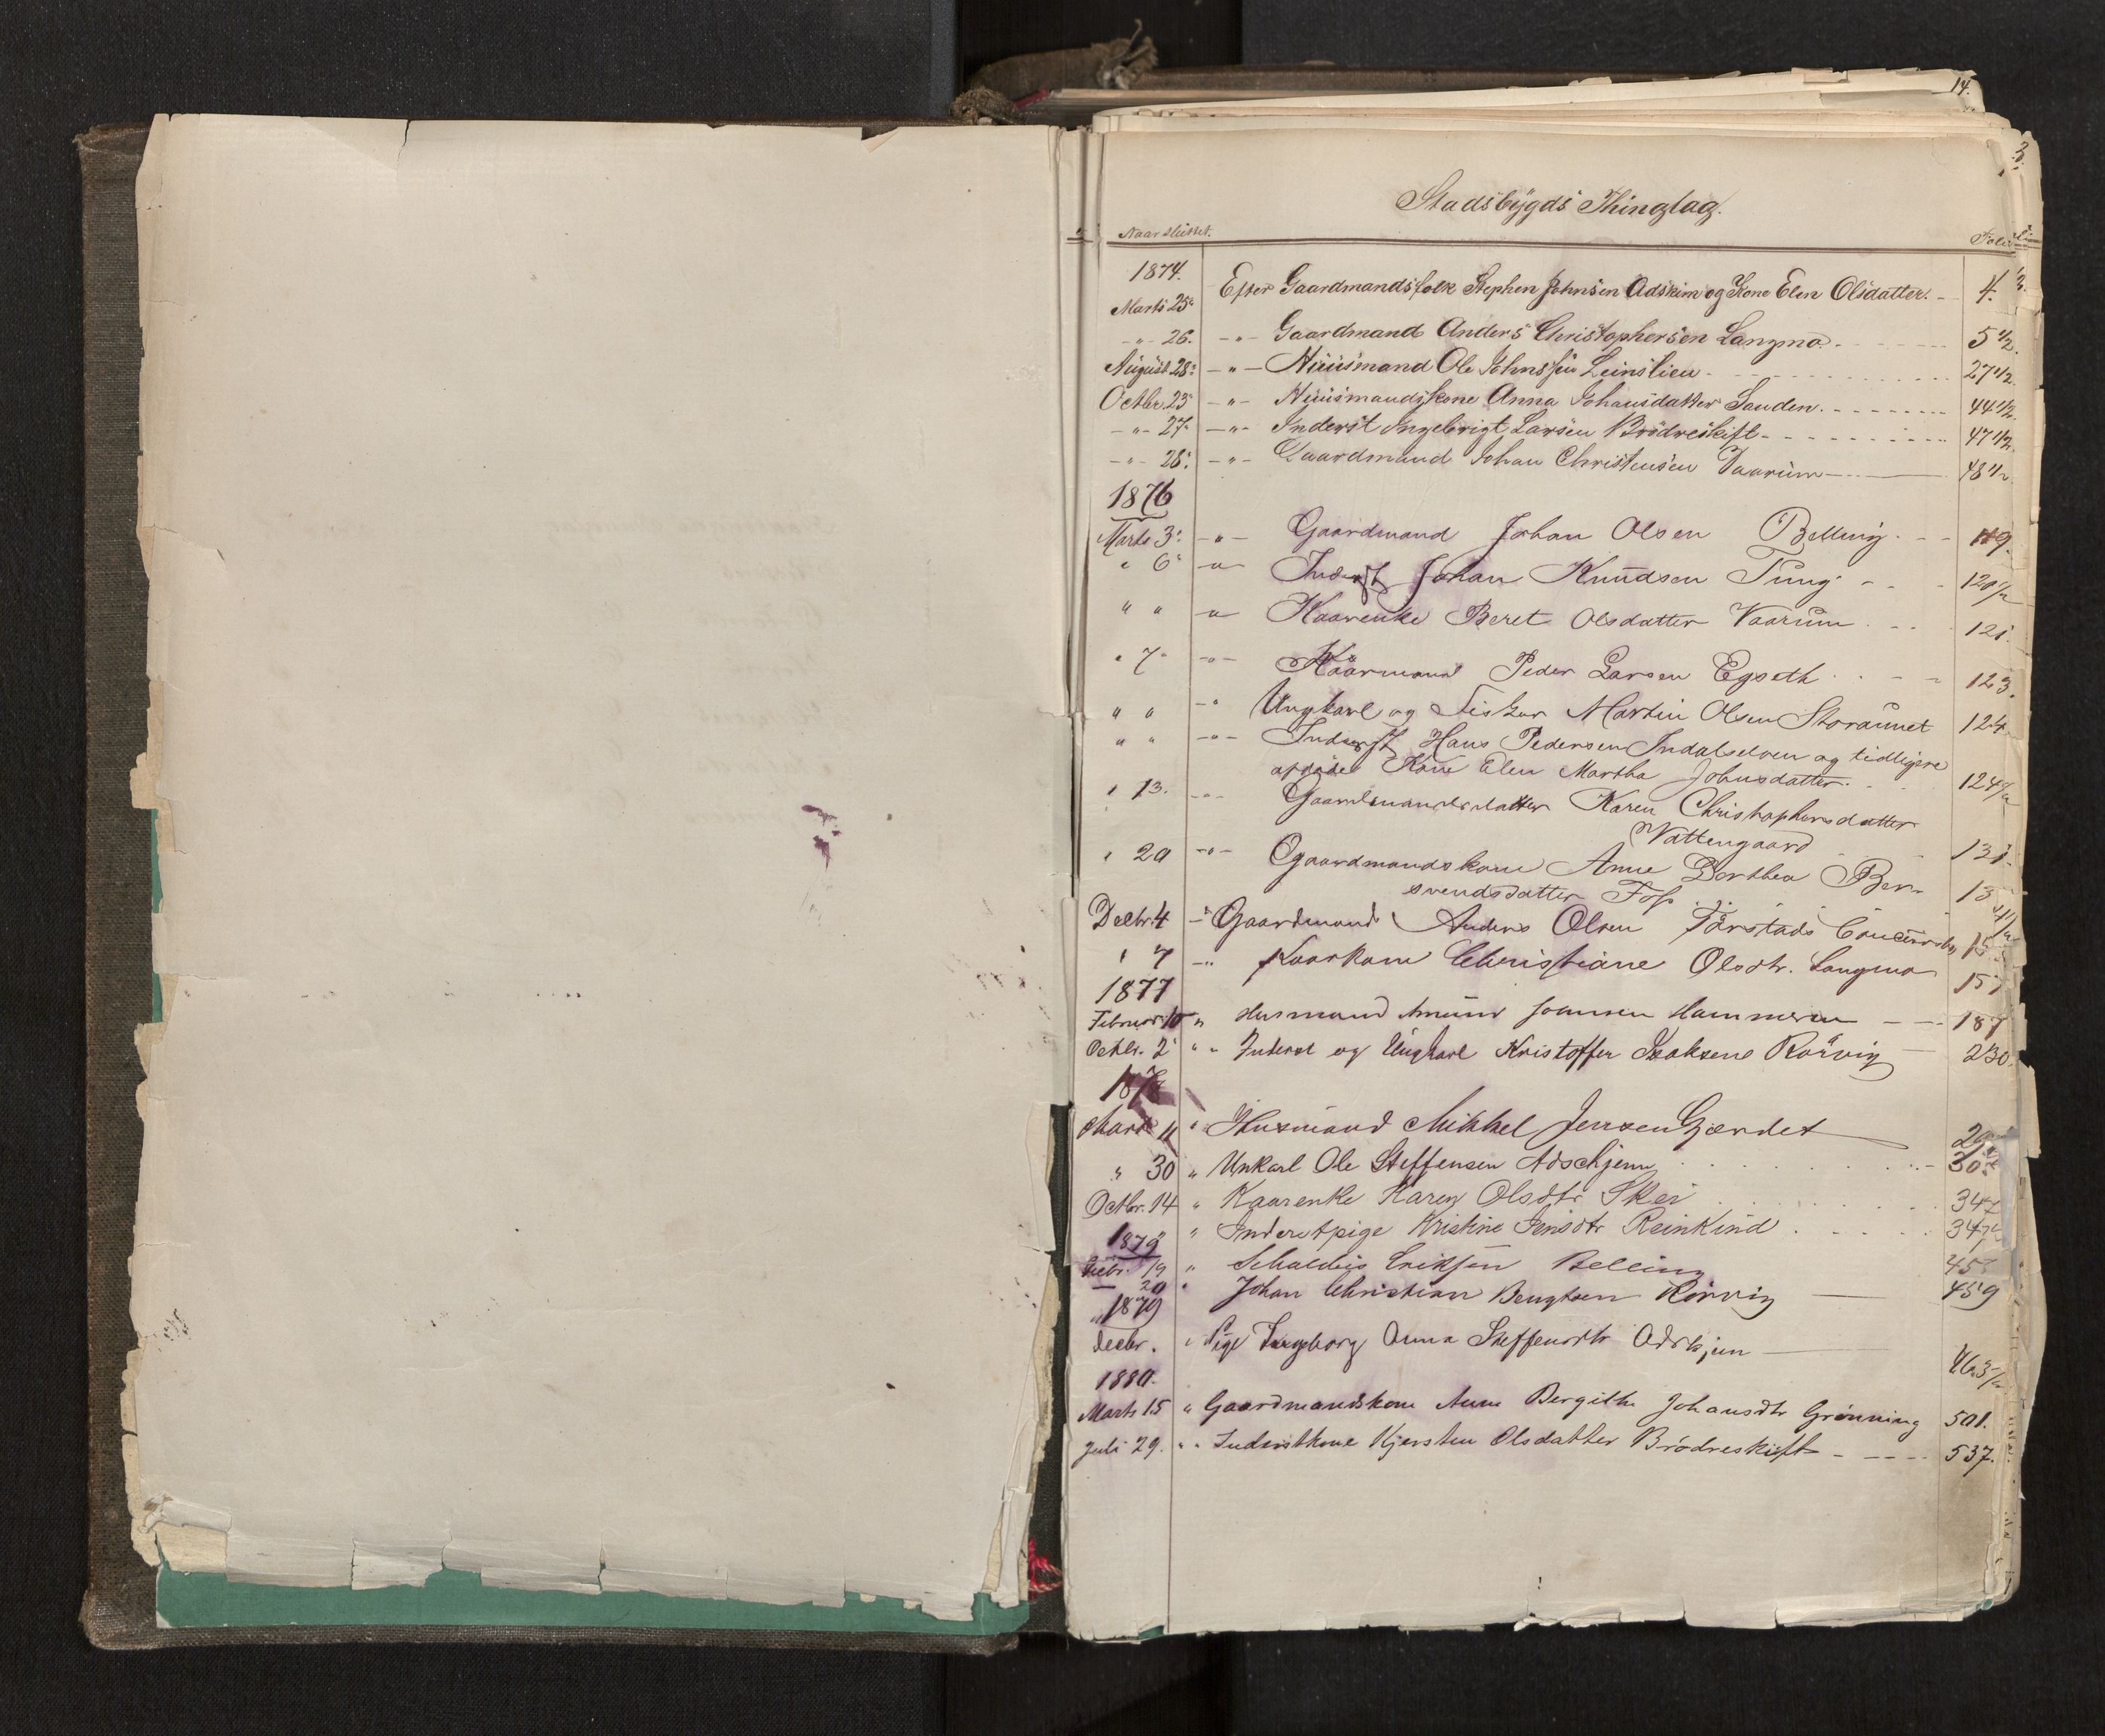 14.
3.
Stadsbygds Thinglag.
Naar sluttet. Folio
1874.
Marts 25. Efter Gaardmandsfolk Stephen Johnsen Adskim og Kone Elen Olsdatter. 4.
-"- 26. -"- Gaardmand Anders Christophersen Langmo. 5 1/2.
August 28. -"- Huusmand Ole Johnsen Leinslien 27 1/2.
Octbr. 23. -"- Huusmandskone Anna Johansdatter Sanden. 44 1/2.
-"- 27. -"- Inderst Ingebrigt Larsen Brödreskift 47 1/2.
-"- 28. -"- Gaardmand Johan Christensen Vaarum 48 1/2
1876
Marts 3. -"- Gaardmand Johan Olsen Belling 119.
" 6. -"- Inderst Johan Knudsen Tung 120 1/2
" " -"- Kaarenke Beret Olsdatter Vaarum 121.
" 7. -"- Kaarmand Peder Larsen Egseth 123.
" " -" Ungkarl og Fisker Martin Olsen Storaunet 124
" " -"- Inderst Hans Pedersen Indalselven og tidligere
afdöde Kone Elen Martha Johnsdatter. 124 1/2
" 13. -"- Gaardmandsdatter Karen Christophersdatter
Vattengaard 131.
" 20 -"- Gaardmandskone Anne Berthea Ber-
svendsdatter Foss 13
Decbr. 4 -"- Gaardmand Anders Olsen Farstads Concursbo 15
" 7 -"- Kaarkone Christiane Olsdtr. Langmo 157
1877
Februar 10 " Husmand Amund Joansen Hammeren 187
Octbr. 2 " " Inderst og Ungkarl Kristoffer Isaksen Rorvig 230.
1878
Marts 11 " Husmand Mikkel Jensen Gjærdet
" 30 " Unkarl Ole Steffensen Adschjem
Octbr. 14 " Kaarenke Karen Olsdtr Skei 347
" " Inderstpige Kristine Jensdtr Reinkind 347 1/2
1879
Febr. 19 " Schaldus Eriksen Belling 458
— 20 " Johan Christian Bengtsen Rörvig 459
" 1879
Decbr. " Pige Ingeborg Anna Steffensdtr Adskjem 463 1/2
1880.
Marts 15 " Gaardmandskone Anne Bergithe Johansdtr Grönning 501.
Juli 29. " " Inderstkone Kjersten Olsdatter Brödreskift 537.